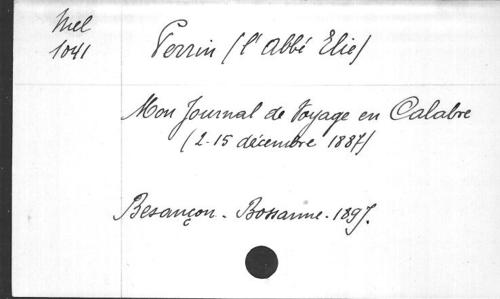 Mel
1041
Perrin (l'Abbé Elie)
Mon Journal de Voyage en Calabre
(2-15 décembre 1887)
Besançon - Bossanne - 1897.